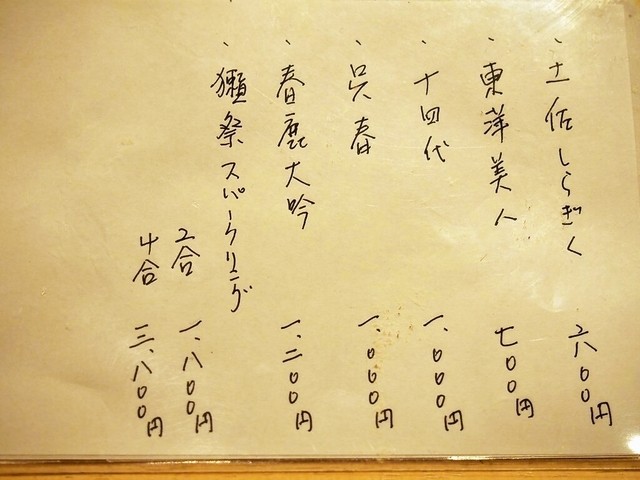 、土佐しらぎく 六〇〇円
、東洋美人 七〇〇円
、十四代 一、〇〇〇円
、呉春 一、〇〇〇円
、春鹿大吟 一、二〇〇円
、獺祭スパークリング
2合 一、八〇〇円
4合 三、八〇〇円